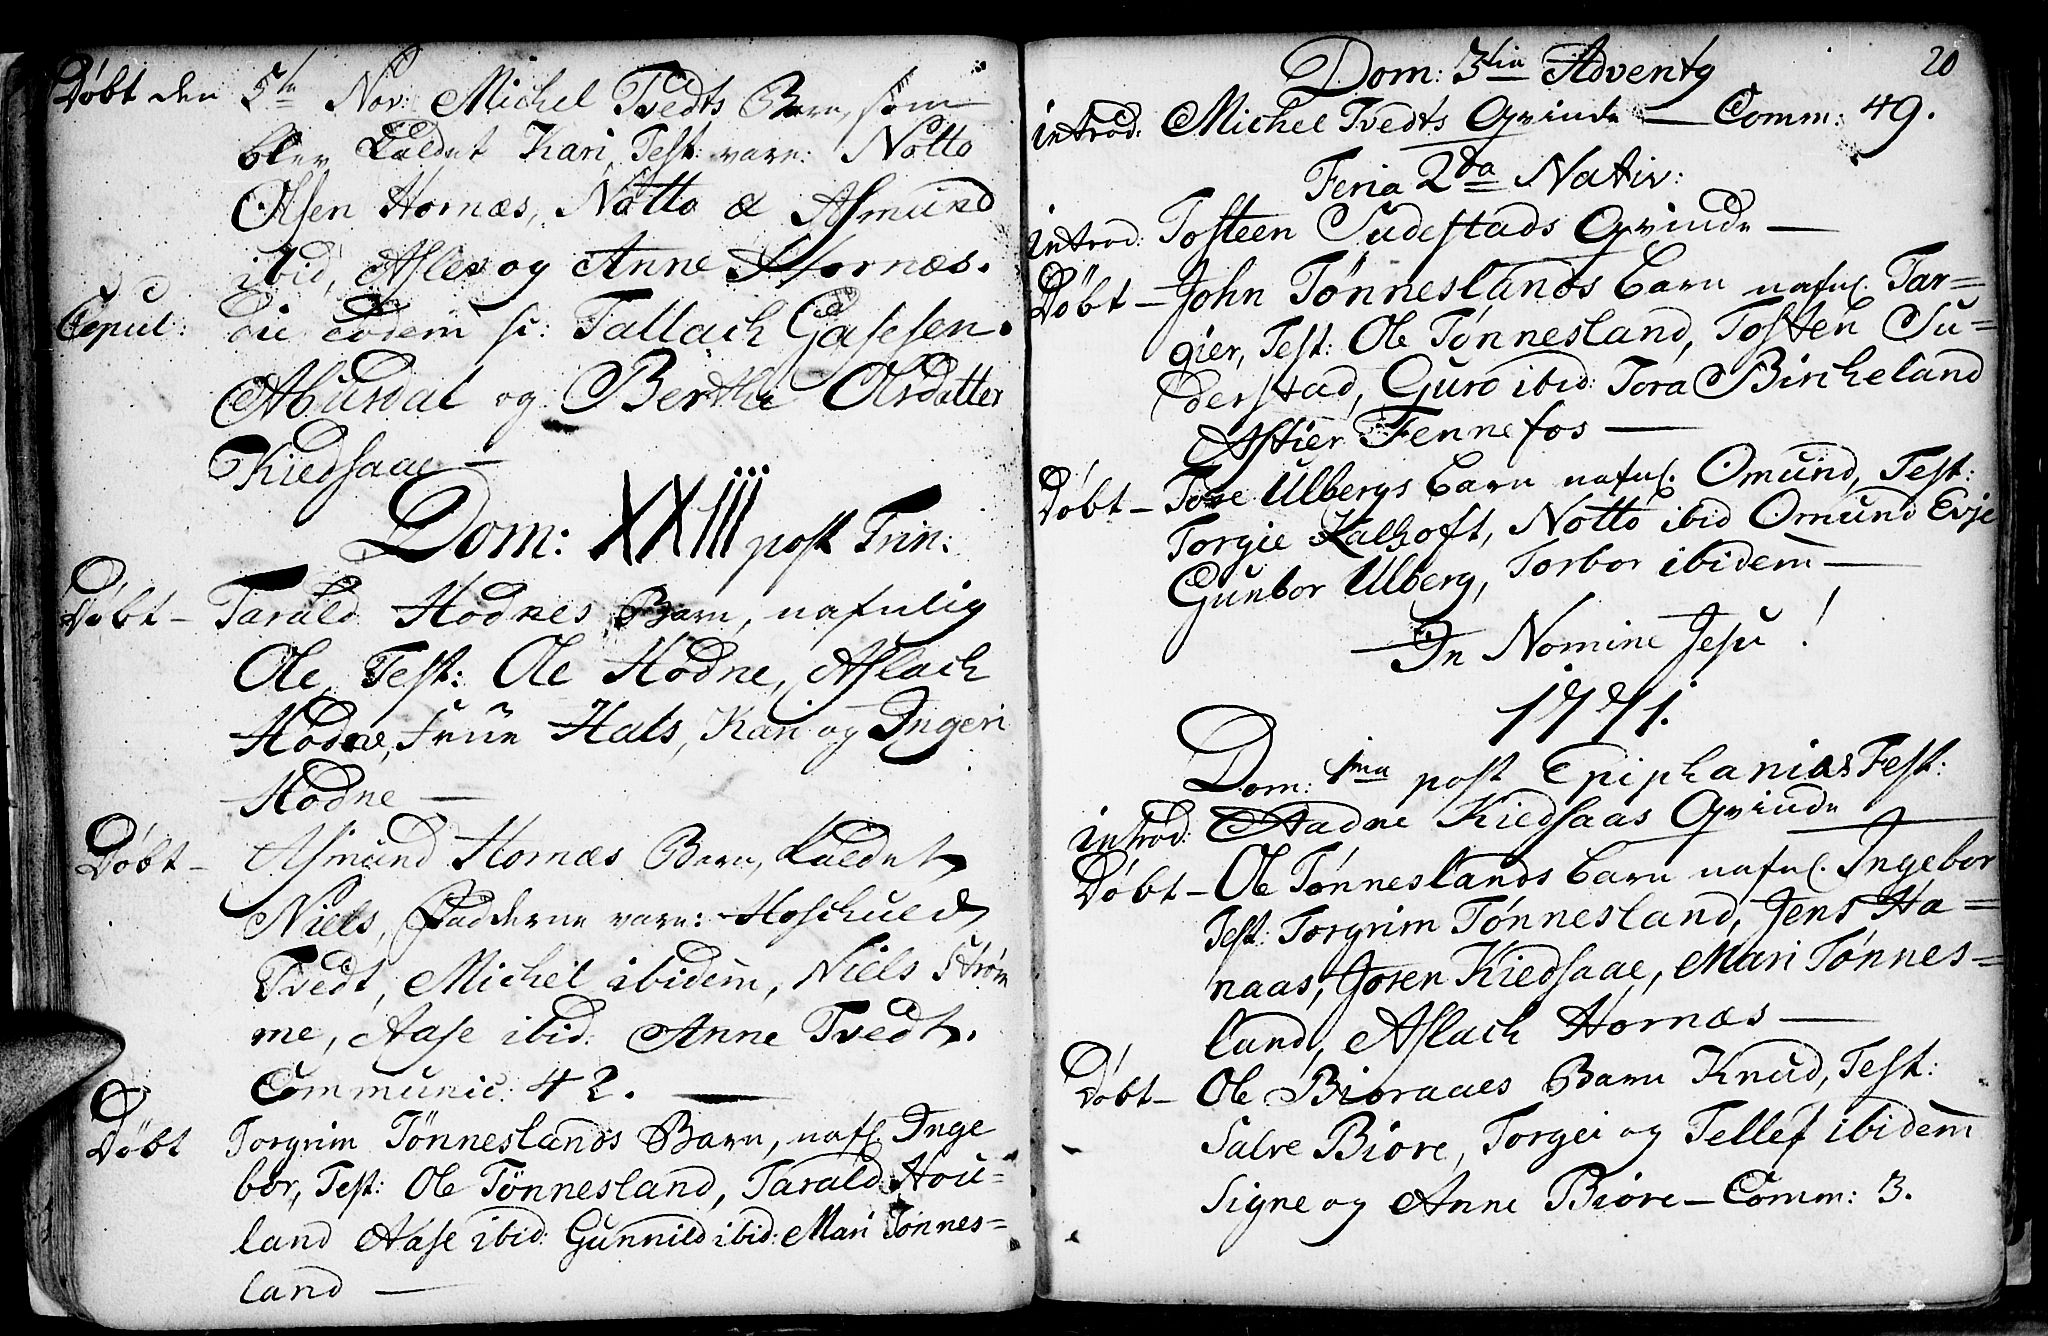 Døbt den 5te Nov: Michel Tvedts Barn, som
blev kaldet Kari, Test: vare: Notto
Olsen Hornæs, Notto & Asmund
ibid, Asler og Anne Hornæs.
Copul: Die eodem s: Tallach Gasesen
Abusdal og Berthe Olsdatter
Kiedsaae —
Dom: XXIII post Trin:
Døbt — Tarald Hodnes Barn, nafnlig
Ole, Test: Ole Hodne, Aslach
Hodne, Fruе Hals, Kari og Ingeri
Hodne —
Døbt — Asmund Hornæs Barn, kaldet
Niels, Fadderne vare: Hoschuld
Tvedt, Michel ibidem, Niels Strøm
me, Aase ibid: Anne Tvedt.
Communic: 42. —
Døbt Torgrim Tönneslands Barn, nafl. Inge
bor, Test: Ole Tönnesland, Tarald Hou=
land Aase ibid: Gunnild ibid: Mari Tønnes=
land —
20
Dom: 3tia Advent9
introd: Michel Tvedts Qvinde — Comm: 49.
Feria 2da Nativ:
introd: Tosteen Suderstads Qvinde —
Døbt — John Tönneslands barn nafnl. Tar=
gier, Test: Ole Tønnesland, Tosten Su=
derstad, Guro ibid: Tora Bircheland
Astier Fennefos —
Døbt — Tore Ulbergs barn nafnl. Omund, Test:
Torgie Kalhoft, Notto ibid Omund Evje
Gunbor Ulberg, Torbor ibidem —
In Nomine Jesu!
1771.
Dom: 1ma post Epiphanias Fest:
introd: Aadne Kiedsaas Qvinde —
Døbt — Ole Tønneslands barn nafnl. Ingebor
Test: Torgrim Tönnesland, Jens Ha=
naas, Joren Kiedsaae, Mari Tønnes=
land, Aslach Hornæs —
Døbt — Ole Bioraaes Barn Knud, Test:
Salve Biøre, Torgei og Tellef ibidem
Signe og Anne Biøre — Comm: 3.